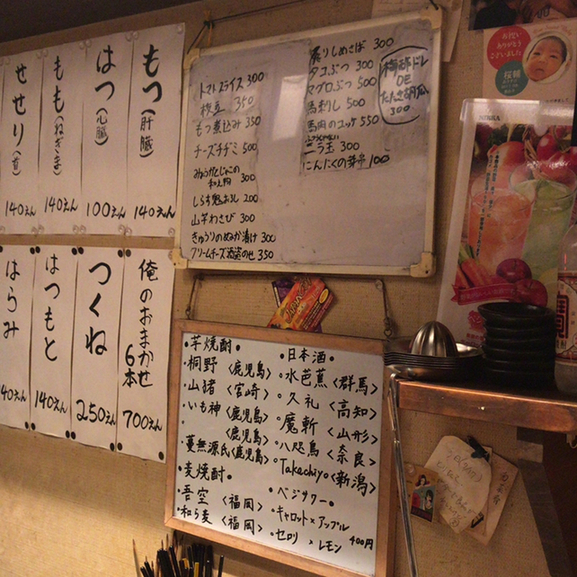 もつ(肝臓)
140えん
はつ(心臓)
100えん
もも(ねぎま)
140えん
せせり(首)
140えん
俺のおまかせ
6本
700えん
つくね
250えん
はつもと
140えん
はらみ
40えん
トマトスライス 300
枝豆 350
もつ煮込み 350
チーズチヂミ 500
みょうがとじゃこの
和え物 300
しらす鬼おろし 200
山芋わさび 300
きゅうりのぬか漬け 300
クリームチーズ酒盗のせ 350
炙りしめさば 300
タコぶつ 300
マグロぶつ 500
馬刺し 500
馬肉のユッケ 550
ニラ玉 300
にんにくの芽 100
300
•芋焼酎•
•桐野〈鹿児島〉
•山諸〈宮崎〉
•いも神〈鹿児島〉
〈鹿児島〉
•蔓無源氏〈鹿児島〉
•麦焼酎•
•吾空〈福岡〉
•和ら麦〈福岡〉
•日本酒•
•水芭蕉〈群馬〉
•久礼〈高知〉
•魔斬〈山形〉
•八咫烏〈奈良〉
•Takachiyo〈新潟〉
•ベジサワー•
•キャロット×アップル
•セロリ×レモン
400円
お祝い
ありがとう
ございました